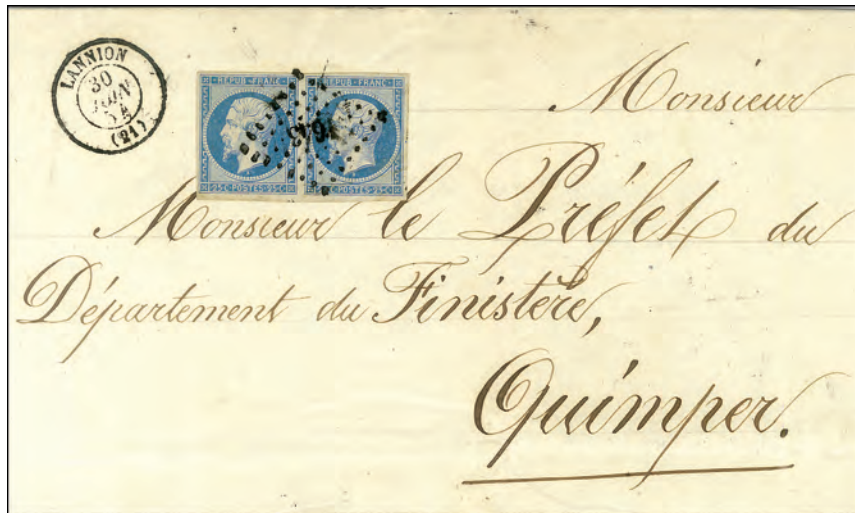 LANNION
30
JUIN
54
(21)
REPUB FRANC
REPUB FRANC
25 C POSTES 25 C
C POSTES 25 C
Monsieur
Monsieur le Préfet du
Département du Finistère,
Quimper.